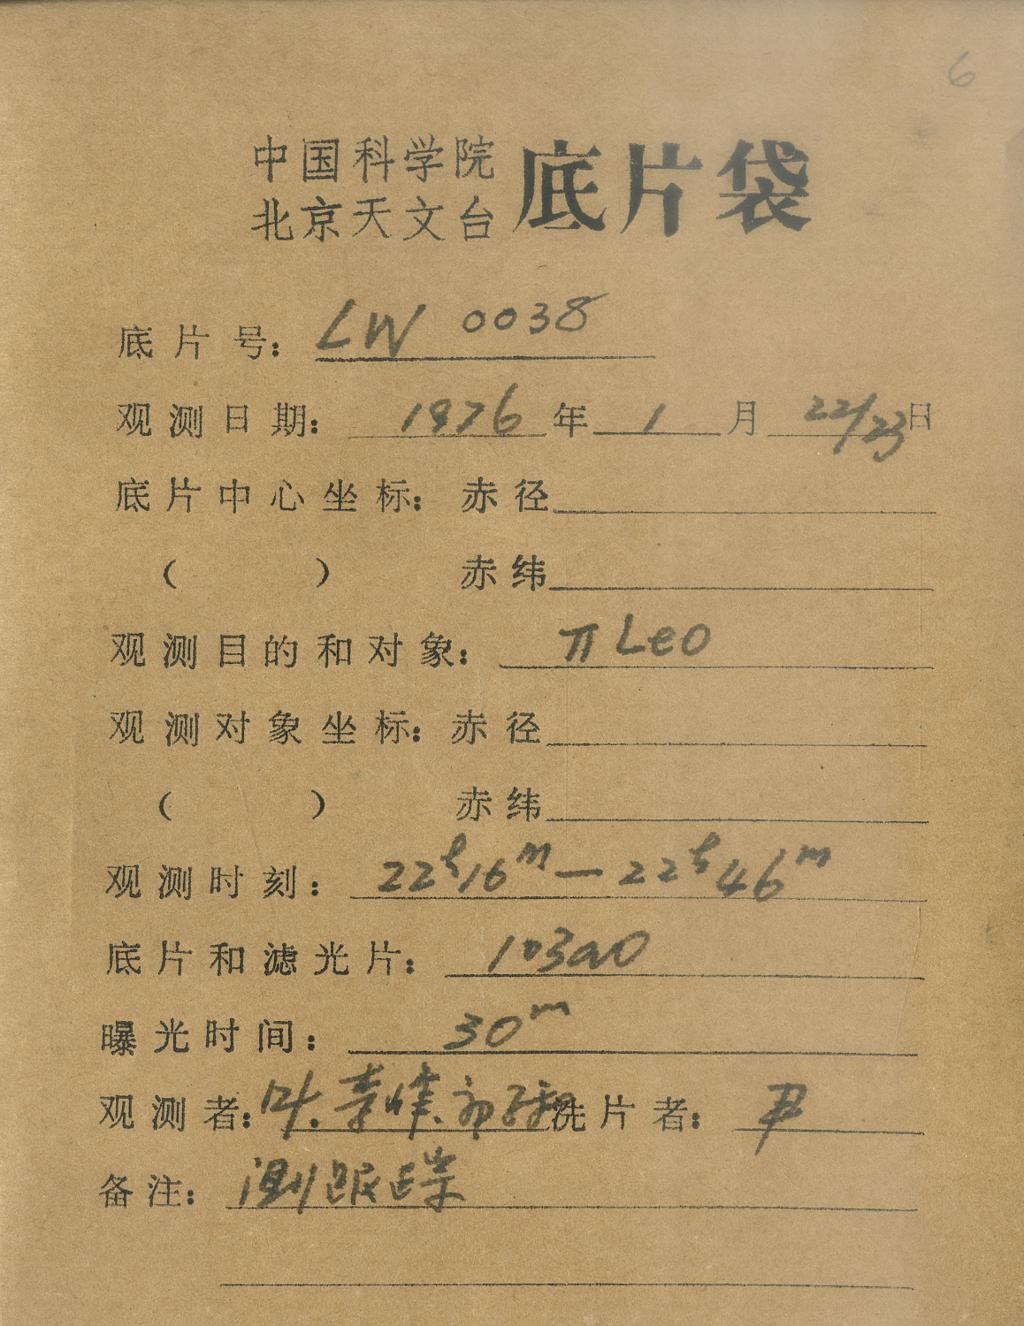 6
中国科学院
北京天文台 底片袋
底片号: LW 0038
观测日期: 1976 年 1 月 22/23 日
底片中心坐标: 赤径
( ) 赤纬
观测目的和对象: π Leo
观测对象坐标: 赤径
( ) 赤纬
观测时刻: 22h16m — 22h46m
底片和滤光片: 103aO
曝光时间: 30m
观测者: 洗片者: 尹
备注: 测跟踪